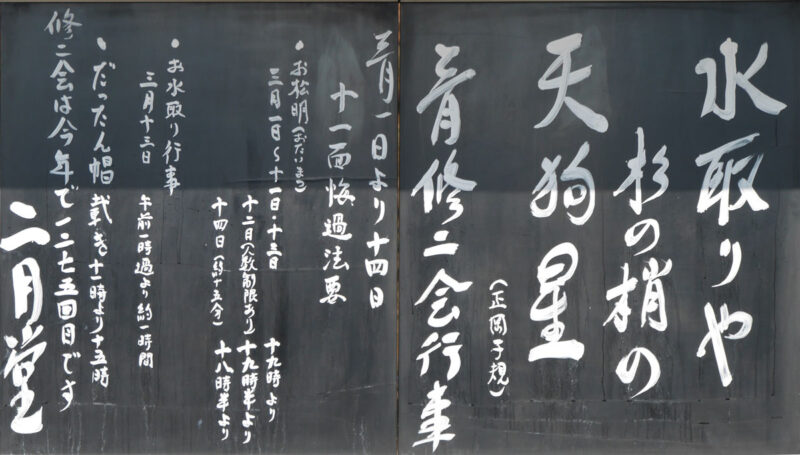 水取りや
杉の梢の
天狗星
(正岡子規)
三月修二会行事
三月一日より十四日
十一面悔過法要
・お松明(おたいまつ)
三月一日〜十一日・十三日 十九時より
十二日(人数制限あり) 十九時半より
十四日(約十五分) 十八時半より
・お水取り行事
三月十三日 午前一時過より約一時間
・だったん帽戴き十一時より十五時
修二会は今年で一二七五回目です
二月堂